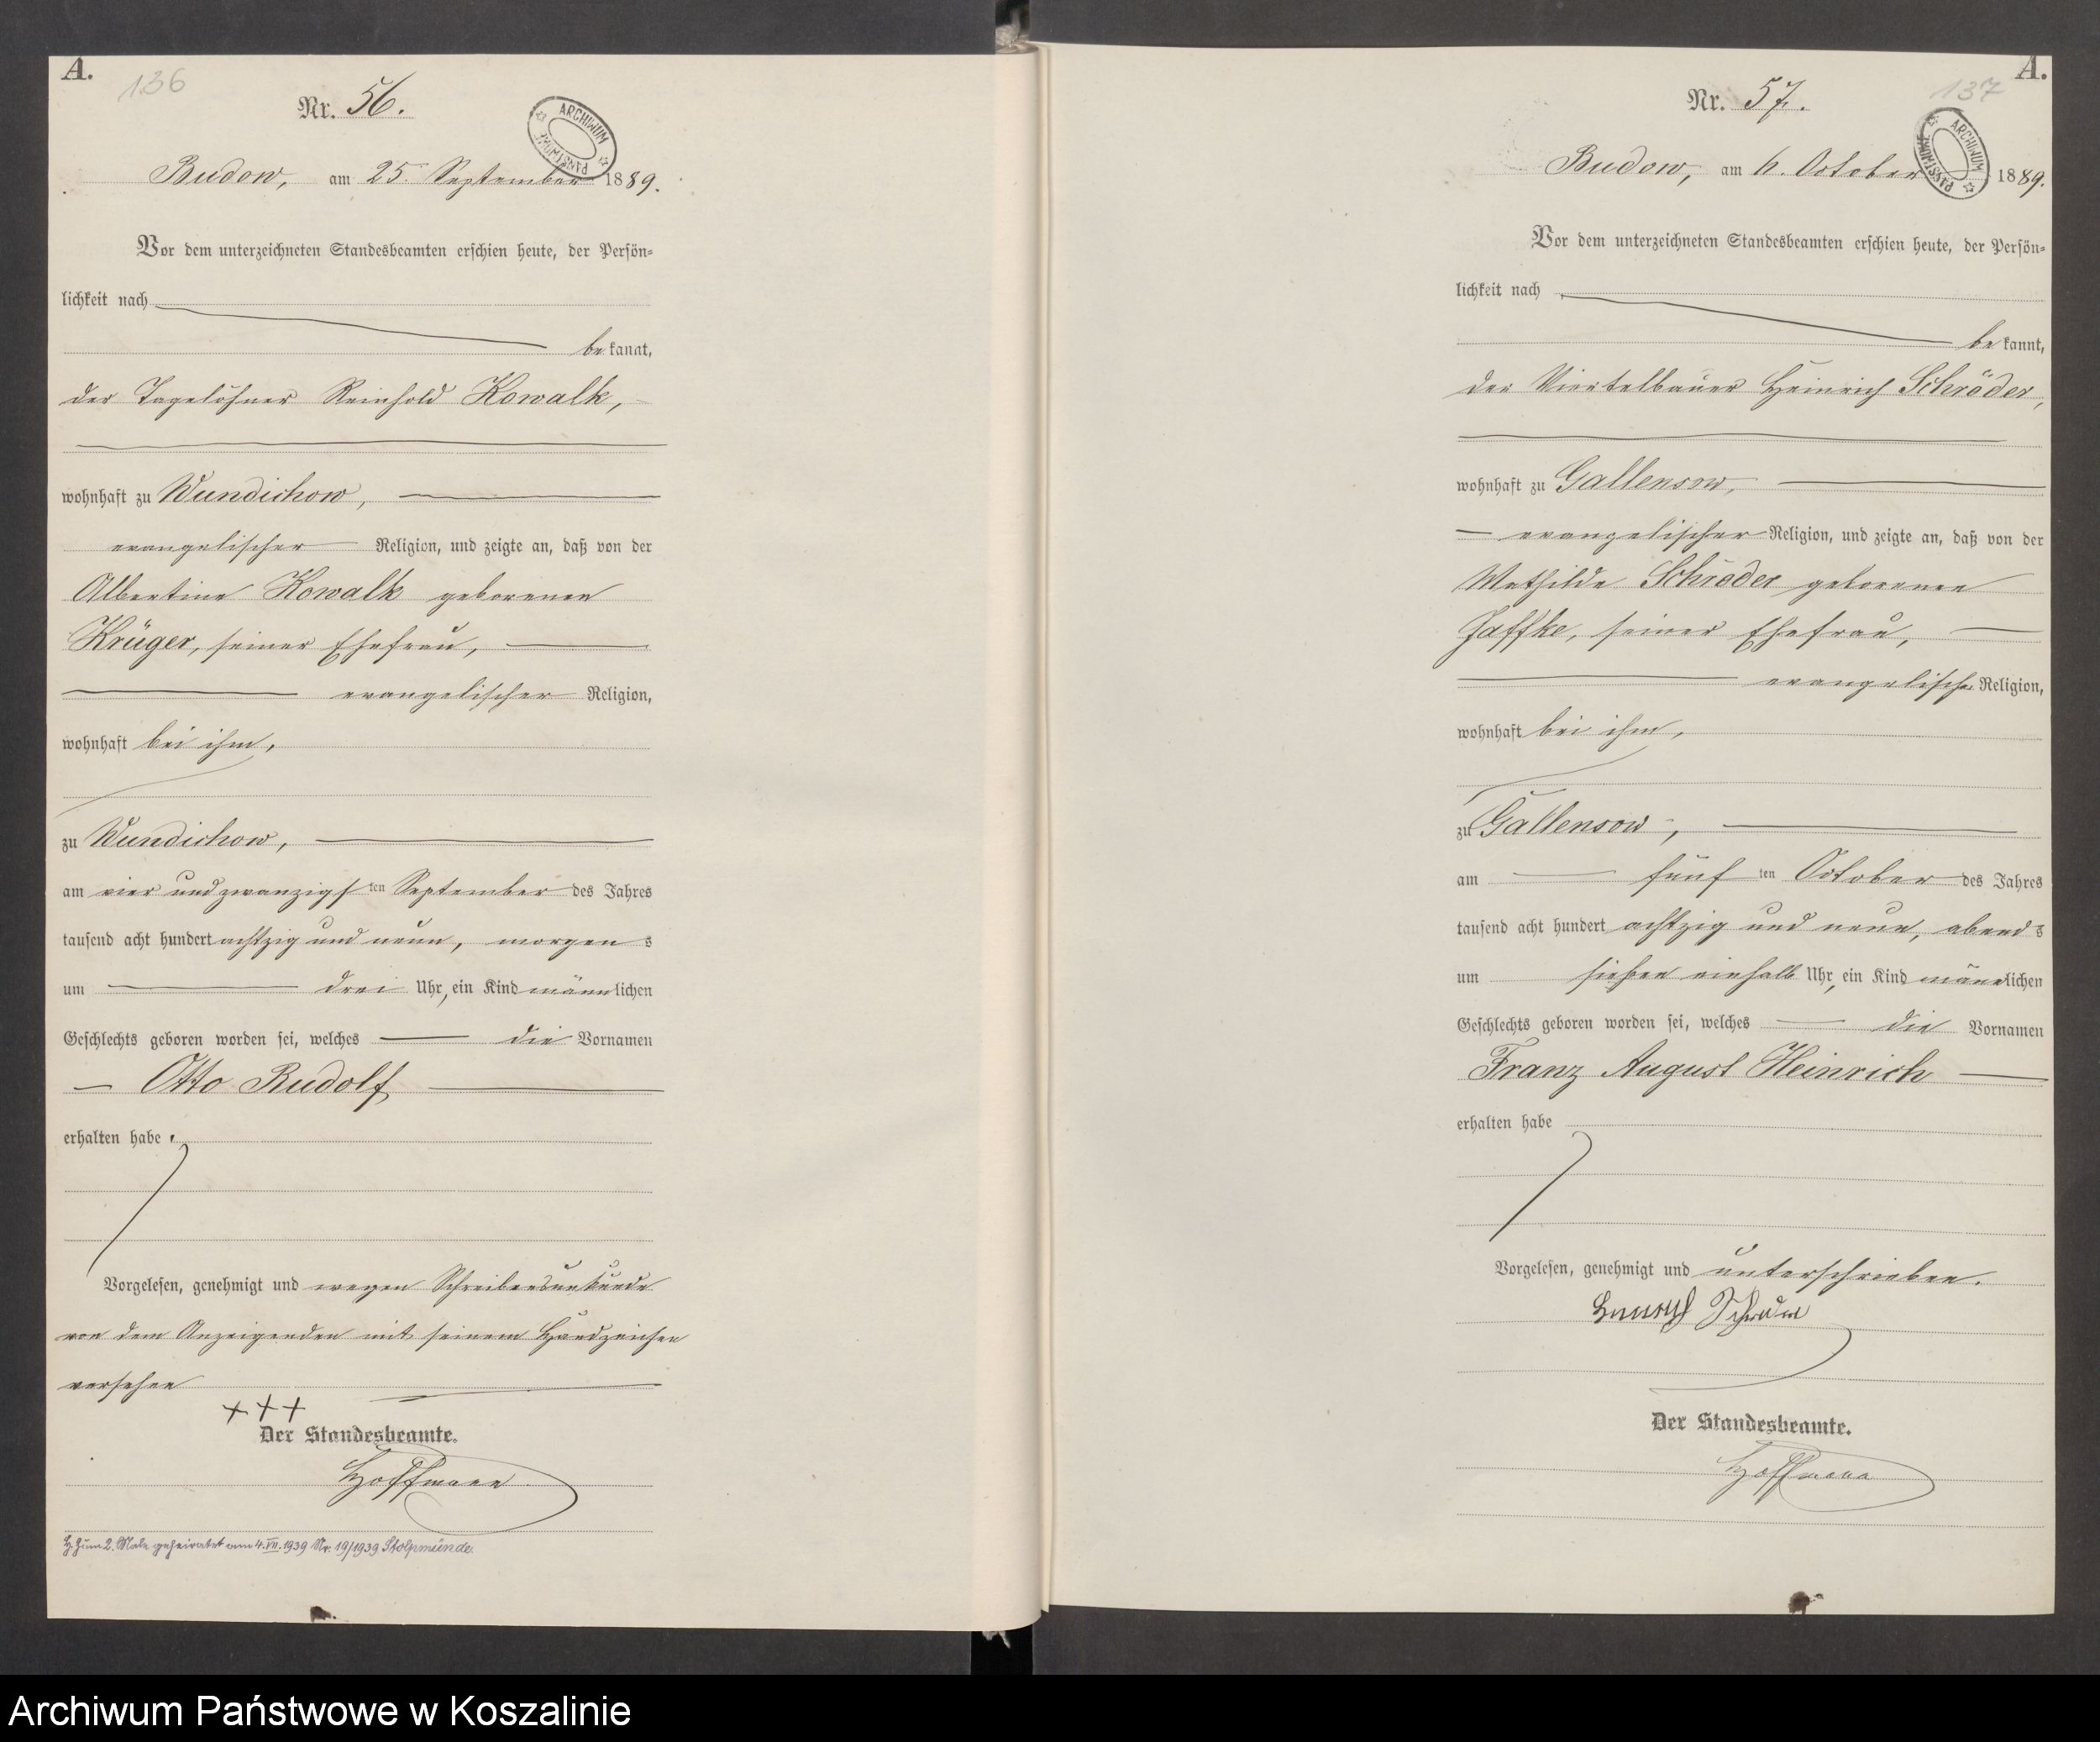 A.
136
Nr. 56.
ARCHIWUM PAŃSTWOWE
Budow, am 25. September 1889.
Vor dem unterzeichneten Standesbeamten erschien heute, der Persön-
lichkeit nach
bekannt,
der Tagelöhner Reinhold Kowalk,
wohnhaft zu Wundichow,
evangelischer Religion, und zeigte an, daß von der
Albertine Kowalk geborenen
Krüger, seiner Ehefrau,
evangelischer Religion,
wohnhaft bei ihm,
zu Wundichow,
am vier und zwanzigsten September des Jahres
tausend acht hundert achtzig und neun, morgens
um drei Uhr, ein Kind männlichen
Geschlechts geboren worden sei, welches die Vornamen
Otto Rudolf
erhalten habe.
Vorgelesen, genehmigt und wegen Schreibensunkunde
von dem Anzeigenden mit seinem Handzeichen
versehen
+++
Der Standesbeamte.
Hoffmann
H. Zum 2. Male geheiratet am 4.VII.1939 Nr. 19/1939 Stolpmünde.
A.
137
Nr. 57.
ARCHIWUM PAŃSTWOWE
Budow, am 6. October 1889.
Vor dem unterzeichneten Standesbeamten erschien heute, der Persön-
lichkeit nach
bekannt,
der Viertelbauer Heinrich Schröder,
wohnhaft zu Gallensow,
evangelischer Religion, und zeigte an, daß von der
Mathilde Schröder geborenen
Jaffke, seiner Ehefrau,
evangelischer Religion,
wohnhaft bei ihm,
zu Gallensow,
am fünften October des Jahres
tausend acht hundert achtzig und neun, abends
um sieben einhalb Uhr, ein Kind männlichen
Geschlechts geboren worden sei, welches die Vornamen
Franz August Heinrich
erhalten habe
Vorgelesen, genehmigt und unterschrieben.
Heinrich Schröder
Der Standesbeamte.
Hoffmann
Archiwum Państwowe w Koszalinie